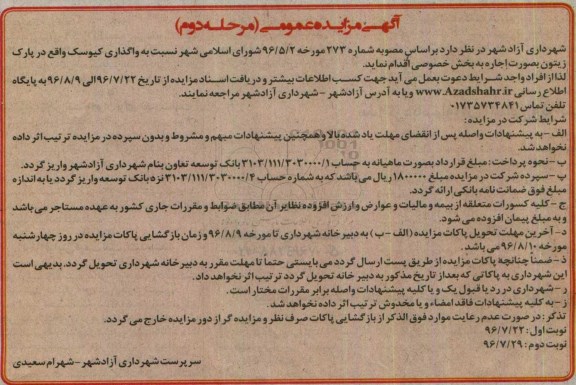 آگهی مزایده عمومی (مرحله دوم)
شهرداری آزاد شهر در نظر دارد براساس مصوبه شماره ۲۷۳ مورخه ۹۶/۵/۲ شورای اسلامی شهر نسبت به واگذاری کیوسک واقع در پارک
زیتون بصورت اجاره به بخش خصوصی اقدام نماید.
لذا از افراد واجد شرایط دعوت بعمل می آید جهت کسب اطلاعات بیشتر و دریافت اسناد مزایده از تاریخ ۹۶/۷/۲۲ الی ۹۶/۸/۹ به پایگاه
اطلاع رسانی www.Azadshahr.ir و یا به آدرس آزادشهر - شهرداری آزادشهر مراجعه نمایند.
تلفن تماس ۰۱۷۳۵۷۳۴۸۴۱
شرایط شرکت در مزایده:
الف - به پیشنهادات واصله پس از انقضای مهلت یاد شده بالا و همچنین پیشنهادات مبهم و مشروط و بدون سپرده در مزایده ترتیب اثر داده
نخواهد شد.
ب - نحوه پرداخت: مبلغ قرارداد بصورت ماهیانه به حساب ۳۱۰۳/۱۱۱/۳۰۳۰۰۰۰/۱ بانک توسعه تعاون بنام شهرداری آزادشهر واریز گردد.
پ - سپرده شرکت در مزایده مبلغ ۱۸۰۰۰۰۰ ریال می باشد که به شماره حساب ۳۱۰۳/۱۱۱/۳۰۳۰۰۰۰/۴ نزد بانک توسعه واریز گردد یا به اندازه
مبلغ فوق ضمانت نامه بانکی ارائه گردد.
ج - کلیه کسورات متعلقه از بیمه و مالیات و عوارض و ارزش افزوده نظایر آن مطابق ضوابط و مقررات جاری کشور به عهده مستاجر می باشد
و به مبلغ پیمان افزوده می شود.
د - آخرین مهلت تحویل پاکات مزایده (الف - ب) به دبیرخانه شهرداری تا مورخه ۹۶/۸/۹ و زمان بازگشایی پاکات مزایده در روز چهارشنبه
مورخه ۹۶/۸/۱۰ می باشد.
ذ - ضمناً چنانچه پاکات مزایده از طریق پست ارسال گردد می بایستی حتماً تا مهلت مقرر به دبیرخانه شهرداری تحویل گردد. بدیهی است
این شهرداری به پاکاتی که بعد از تاریخ مذکور به دبیر خانه تحویل گردد ترتیب اثر نخواهد داد.
ر - شهرداری در رد یا قبول یک و یا کلیه پیشنهادات واصله برابر مقررات مختار است.
ز - به کلیه پیشنهادات فاقد امضاء و یا مخدوش ترتیب اثر داده نخواهد شد.
تذکر: در صورت عدم رعایت موارد فوق الذکر از بازگشایی پاکات صرف نظر و مزایده گر از دور مزایده خارج می گردد.
نوبت اول: ۹۶/۷/۲۲
نوبت دوم: ۹۶/۷/۲۹
سرپرست شهرداری آزادشهر - شهرام سعیدی